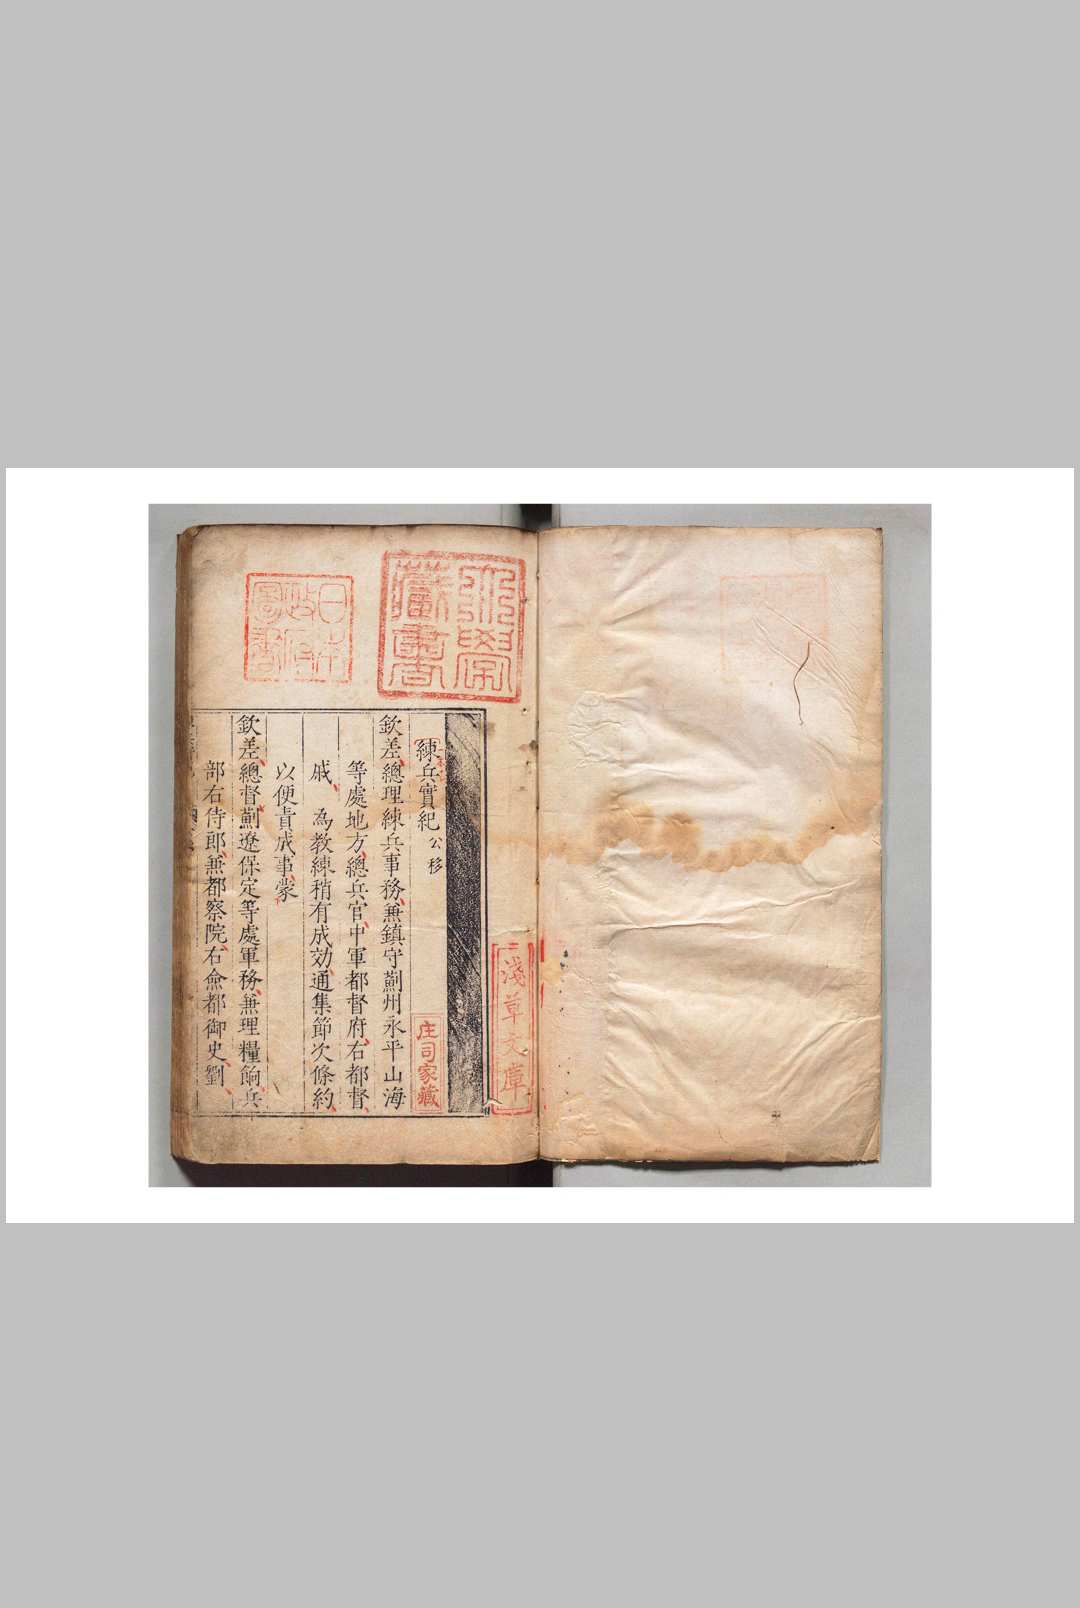 練兵實紀 公移
欽差總理練兵事務兼鎮守薊州永平山海
等處地方總兵官中軍都督府右都督
戚 為教練稍有成効通集節次條約
以便責成事蒙
欽差總督薊遼保定等處軍務兼理糧餉兵
部右侍郎兼都察院右僉都御史劉
藏書
日本政府圖書
淺草文庫
庄司家藏